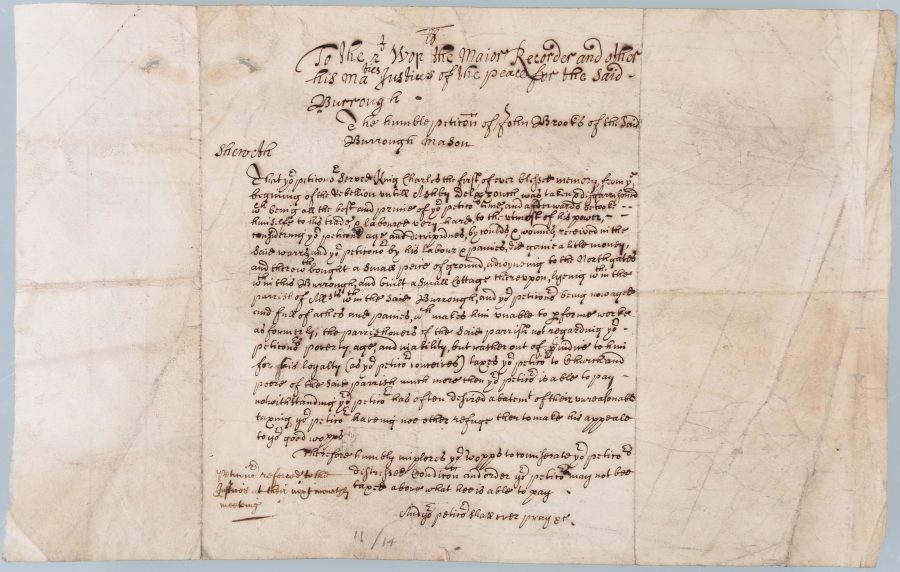 To the Rt Worpll the Maior Recorder and other
his Maties Justices of the peace for the said
Burrough
The humble peticon of John Brooks of the said
Burrough Mason
Sheweth
That yor peticonr served King Charles the first of ever blessed memory from ye
begining of the Rebellion untill Ashby Delazouch was taken & disgarrisoned
wch being all the best and prime of yor peticonrs and afterwards betook
himselfe to his trade & laboured very hard, to the utmost of his power,
considering yor peticonrs age, and decripidnes, by coulds & wounds, received in the
said warrs, and yor peticonr by his labour & paines, did gaine a little money,
and therewth bought a small peice of ground, adioyneing to the Northgates
wthin this Burrough, and built a small Cottage thereupon, lyeing wthin the
parrish of All Sts wthin the said Burrough, and yor peticonr being now aged
and full of aches and paines, wch makes him unable to pforme worke
as formerly, the parrishoners of the said parrish not regarding yor
peticonrs poverty, age, and inability, but rather out of priudice to him
for his loyalty (as yor peticonr conceives) taxes yor peticonr to Church and
poore of the said parrish much more then yor peticonr is able to pay
notwithstanding yor peticonr has often desired abatemt of their unreasonable
taxing, yor peticonr haveing noe other refuge then to make his appeale
to yor good worpps
Therefore humbly implores yor worpps to comiserate yor peticonrs
distressed Condicon and order yor peticonr may not bee
taxed above what hee is able to pay
And yor peticonr shall ever pray &c.
referred to the
Justices at their next monethly
meeting
11/14